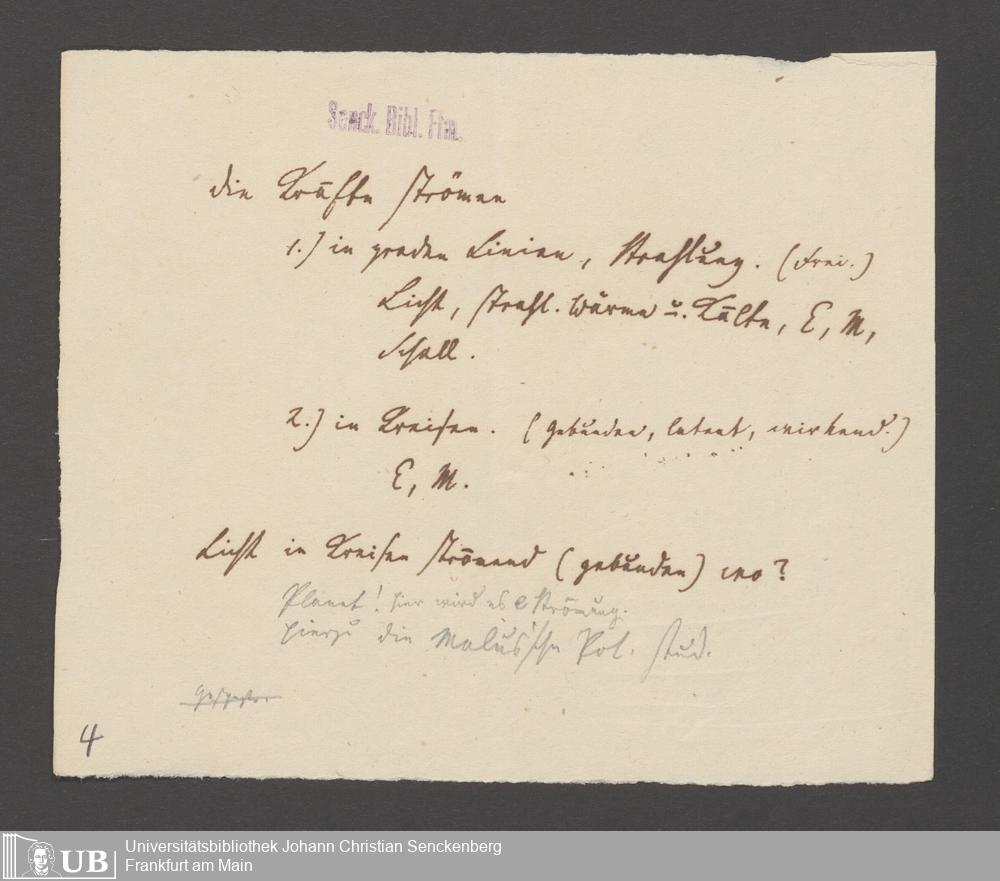 Senck. Bibl. Ffm.
die Kräfte strömen
1.) in graden Linien, Strahlung. (frei.)
Licht, strahl. Wärme u. Kälte, E, M,
Schall.
2.) in Kreisen. (gebunden, latent, wirkend.)
E, M.
Licht in Kreisen strömend (gebunden) wo?
Planet! hier wird es e Strömung.
hierzu die Malus'sche Pol. stud.
4
UB
Universitätsbibliothek Johann Christian Senckenberg
Frankfurt am Main